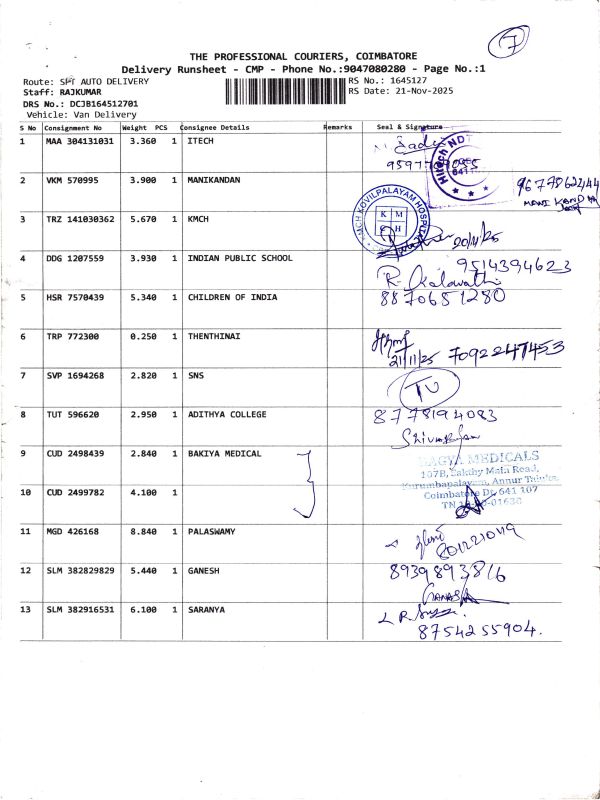 7
THE PROFESSIONAL COURIERS, COIMBATORE
Delivery Runsheet - CMP - Phone No.:9047080280 - Page No.:1
Route: SPT AUTO DELIVERY
RS No.: 1645127
Staff: RAJKUMAR
RS Date: 21-Nov-2025
DRS No.: DCJB164512701
Vehicle: Van Delivery
S No Consignment No Weight PCS Consignee Details Remarks Seal & Signature
1 MAA 304131031 3.360 1 ITECH
2 VKM 570995 3.900 1 MANIKANDAN
9677562444
3 TRZ 141030362 5.670 1 KMCH
K M C H
20/11/25
4 DDG 1207559 3.930 1 INDIAN PUBLIC SCHOOL 9514394623
R. Kalavathi
5 HSR 7570439 5.340 1 CHILDREN OF INDIA 8870651280
6 TRP 772300 0.250 1 THENTHINAI
21/11/25 7092247453
7 SVP 1694268 2.820 1 SNS
8 TUT 596620 2.950 1 ADITHYA COLLEGE 8778194083
9 CUD 2498439 2.840 1 BAKIYA MEDICAL
MEDICALS
107B, Sakthy Main Road,
Kurumbapalayam, Annur Taluka,
10 CUD 2499782 4.100 1
Coimbatore Dt. 641 107
11 MGD 426168 8.840 1 PALASWAMY
12 SLM 382829829 5.440 1 GANESH 8939893816
13 SLM 382916531 6.100 1 SARANYA
8754255904.